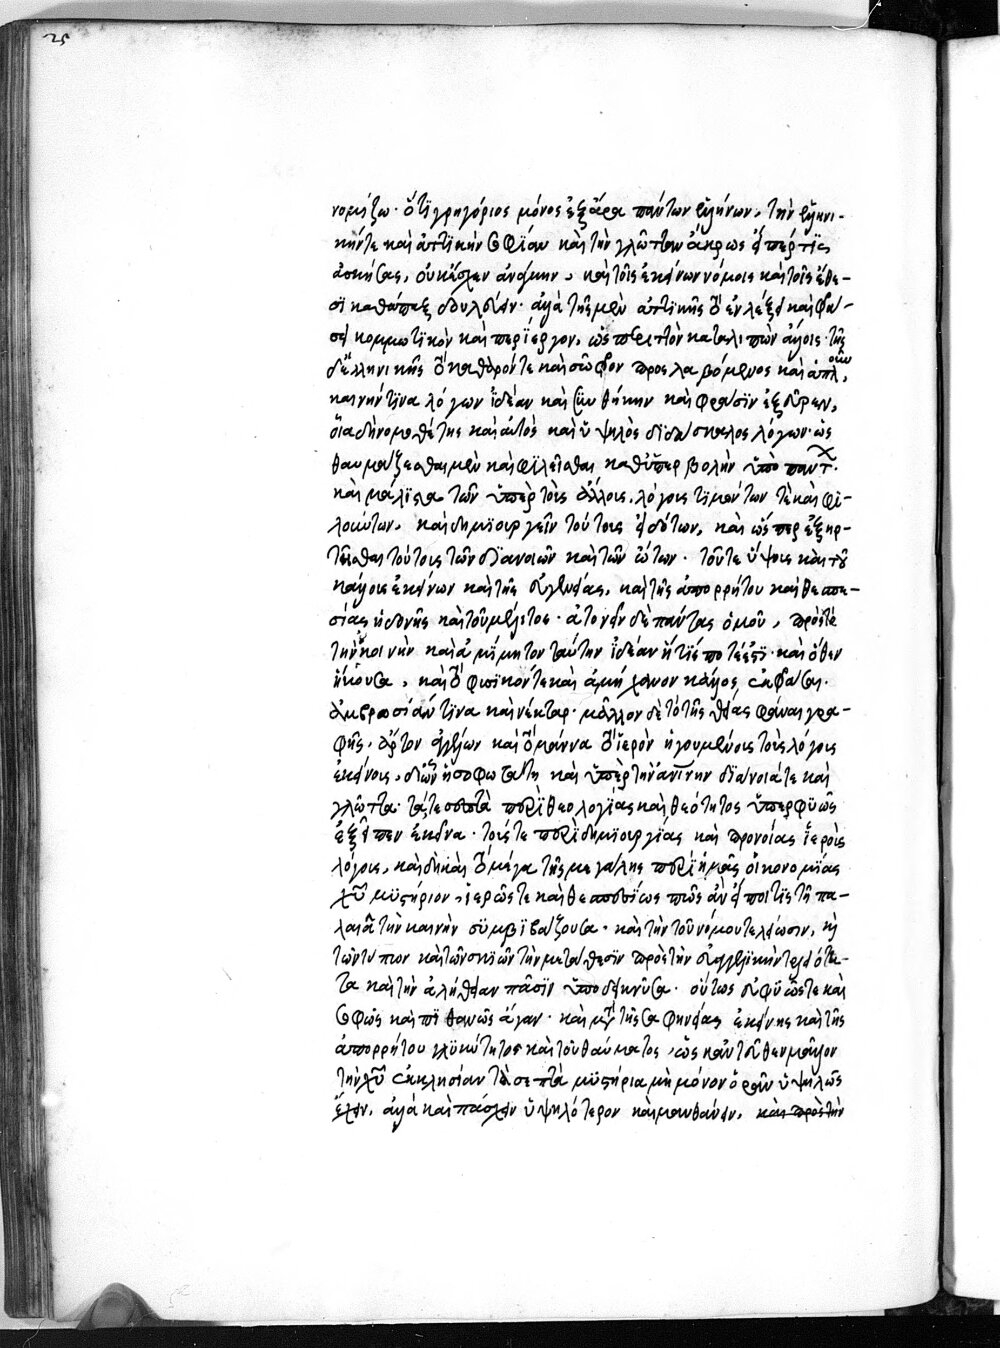 25
νομίζω· ὅτι γρηγόριος μόνος ἐξ ἆρα πάντων ἑλλήνων, τὴν ἑλληνι-
κήν τε καὶ ἀττικὴν σοφίαν καὶ τὴν γλῶτταν ἄκρως εἴπέρ τις
ἀσκήσας, οὐκ ἔσχεν ἀνάγκην, καὶ τοῖς ἐκείνων νόμοις καὶ τοῖς ἔθε-
σι καθάπαξ δουλεύειν· ἀλλὰ τῆς μὲν ἀττικῆς τὸ ἐν λέξει καὶ φρά-
σει κομμωτικὸν καὶ περίεργον, ὡς περιττὸν καταλιπὼν ἄλλοις· τῆς
δ' ἑλληνικῆς τὸ καθαρόν τε καὶ σῶφρον προσλαβόμενος καὶ ἁπλοϊκὸν,
καινήν τινα λόγων ἰδέαν καὶ συνθήκην καὶ φράσιν ἐξεῦρεν,
οἷα δὴ νομοθέτης καὶ αὐτὸς καὶ ὑψηλὸς διδάσκαλος λόγων· ὡς
θαυμάζεσθαι μὲν καὶ φιλεῖσθαι καθ' ὑπερβολὴν ὑπὸ πάντων·
καὶ μάλιστα τῶν ὑπὲρ τοὺς ἄλλους, λόγους τιμώντων τὲ καὶ φι-
λούντων, καὶ δημιουργεῖν τούτους εἰδότων, καὶ ὥσπερ ἐξηρ-
τῆσθαι τούτοις τῶν διανοιῶν καὶ τῶν ὤτων· τοῦ τε ὕψους καὶ τοῦ
κάλλους ἐκείνων καὶ τῆς εὐγλωττίας, καὶ τῆς ἀπορρήτου καὶ θεσπε-
σίας ἡδονῆς καὶ τοῦ μέλιτος· ἀτονεῖν δὲ πάντας ὁμοῦ, πρός τε
τὴν κοινὴν καὶ ἀμίμητον ταύτην ἰδέαν ἥτις ποτέ ἐστι· καὶ ὅθεν
ἥκουσα, καὶ τὸ φυσικόν τε καὶ ἀμήχανον κάλλος ἐκφάσαι·
ἀμβροσίαν τινα καὶ νέκταρ· μᾶλλον δὲ τὸ τῆς θείας φάναι γρα-
φῆς, ἄρτον ἀγγέλων καὶ τὸ μάννα τὸ ἱερὸν ἡγουμένοις τοὺς λόγους
ἐκείνους, δι' ὧν ἡ σοφωτάτη καὶ ὑπὲρ τὴν ἀνθρωπίνην διάνοιά τε καὶ
γλῶττα· τά τε σεπτὰ περὶ θεολογίας καὶ θεότητος ὑπερφυῶς
ἐξεῖπεν ἐκείνα· τούς τε περὶ δημιουργίας καὶ προνοίας ἱεροὺς
λόγους, καὶ δὴ καὶ τὸ μέγα τῆς μεγάλης περὶ ἡμᾶς οἰκονομίας
χυ μυστήριον, ἱερῶς τε καὶ θεοσεβῶς πῶς ἂν εἴποι τις τῇ πα-
λαιᾷ τὴν καινὴν συμβιβάζουσα· καὶ τὴν τοῦ νόμου τελείωσιν, κὶ
τῶν τύπων καὶ τῶν σκιῶν τὴν μετάθεσιν πρὸς τὴν εὐαγγελικὴν τελειότη-
τα καὶ τὴν ἀλήθειαν πᾶσιν ὑποδεικνῦσα· οὕτως εὐφυῶς τε καὶ
σοφῶς καὶ πιθανῶς ἄγαν· καὶ μετὰ τῆς σαφηνείας ἐκείνης καὶ τῆς
ἀπορρήτου γλυκύτητος καὶ τοῦ θαύματος, ὡς κἀντεῦθεν μᾶλλον
τὴν χυ ἐκκλησίαν τὰ σεπτὰ μυστήρια μὴ μόνον ὁρᾶν ὑψηλῶς
ἔχειν, ἀλλὰ καὶ πάσχειν ὑψηλότερον καὶ μανθάνειν, καὶ πρὸς τὴν